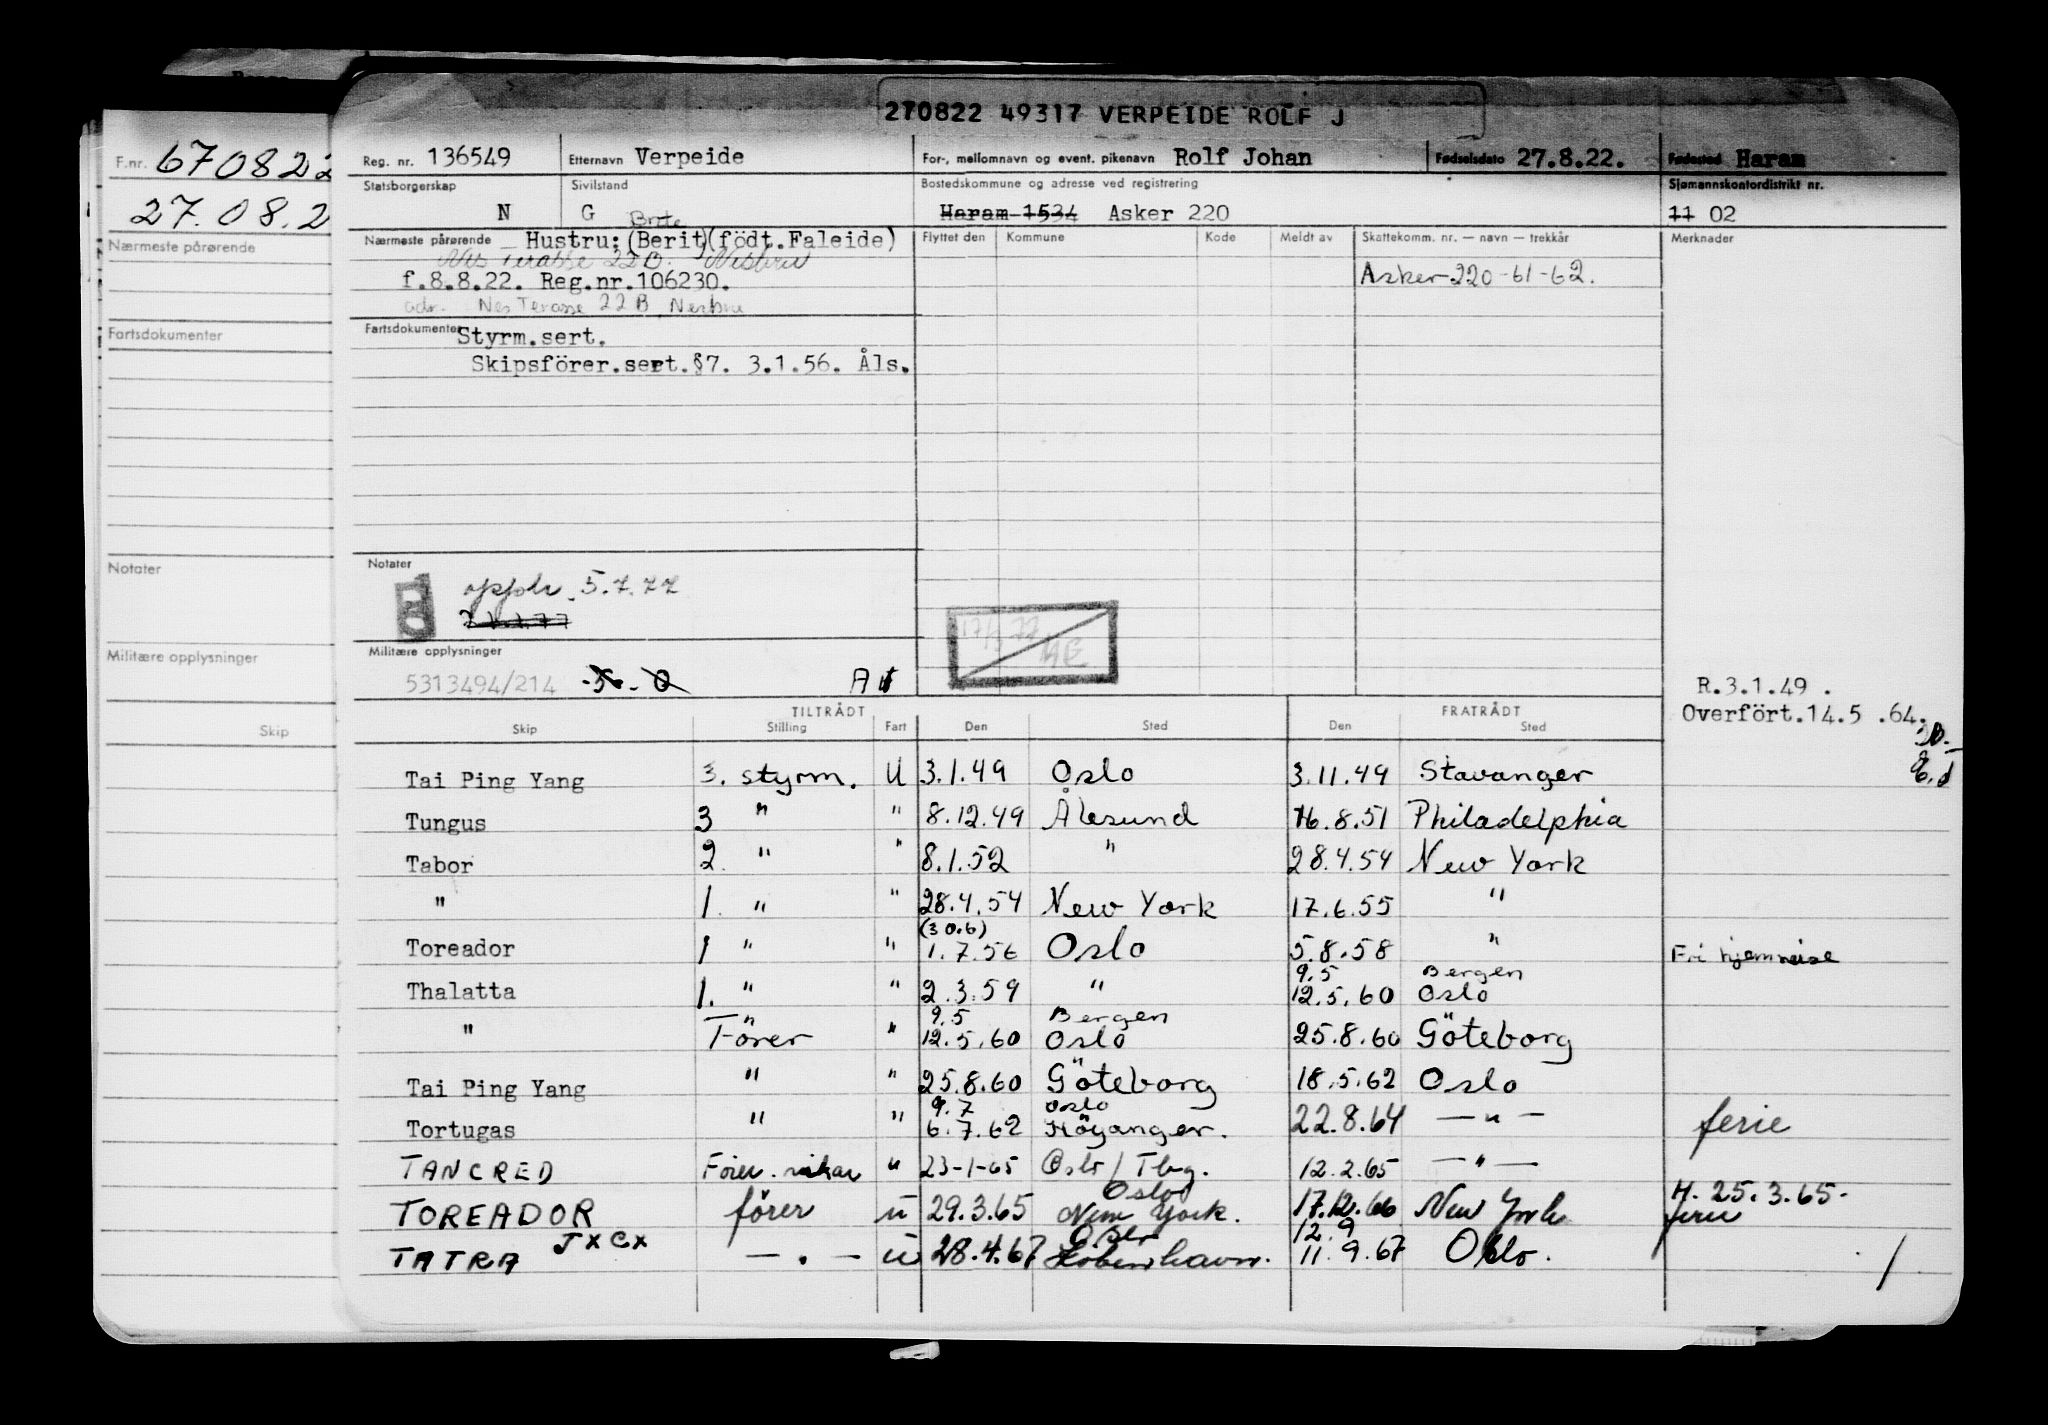 270822 49317 VERPEIDE ROLF J
F.nr. 670822
27.08.2
Nærmeste pårørende
Fartsdokumenter
Notater
Militære opplysninger
Skip
Reg. nr. 136549 Etternavn Verpeide For-, mellomnavn og event. pikenavn Rolf Johan Fødselsdato 27.8.22. Fødested Haram
Statsborgerskap Sivilstand Bostedskommune og adresse ved registrering Sjømannskontordistrikt nr.
N G Haram 1534 Asker 220 11 02
Brite
Nærmeste pårørende Hustru: (Berit) (födt.Faleide) Flyttet den Kommune Kode Meldt av Skattekomm. nr. — navn — trekkår Merknader
Nes terasse 22B. Nesbru
f.8.8.22. Reg.nr.106230. Asker 220-61-62.
adr. Nes Terasse 22B, Nesbru
Fartsdokumenter Styrm.sert.
Skipsförer.sert.§7. 3.1.56. Åls.
Notater
5.7.77
17/1 72
Militære opplysninger
5313494/214
R.3.1.49 .
Overfört.14.5 .64.
TILTRÅDT FRATRÅDT
Skip Stilling Fart Den Sted Den Sted
Tai Ping Yang 3. styrm. U 3.1.49 Oslo 3.11.49 Stavanger
Tungus 3 " " 8.12.49 Ålesund 16.8.51 Philadelphia
Tabor 2. " " 8.1.52 " 28.4.54 New York
" 1. " " 28.4.54 New York 17.6.55 "
(30.6)
Toreador 1 " " 1.7.56 Oslo 5.8.58 " Fri hjemreise
9.5 Bergen
Thalatta 1. " " 2.3.59 " 12.5.60 Oslo
9.5 Bergen
" Förer " 12.5.60 Oslo 25.8.60 Göteborg
Tai Ping Yang " " 25.8.60 Göteborg 18.5.62 Oslo
9.7 Oslo
Tortugas " " 6.7.62 Höyanger. 22.8.64 — " — ferie
TANCRED Förer. vikar " 23-1-65 Oslo / Tbg. 12.2.65 — " —
Oslo H. 25.3.65.
TOREADOR förer u 29.3.65 New York. 17.12.66 New York ferie
JxCx Oslo 12.9
TATRA — . — u 28.4.67 København. 11.9.67 Oslo.